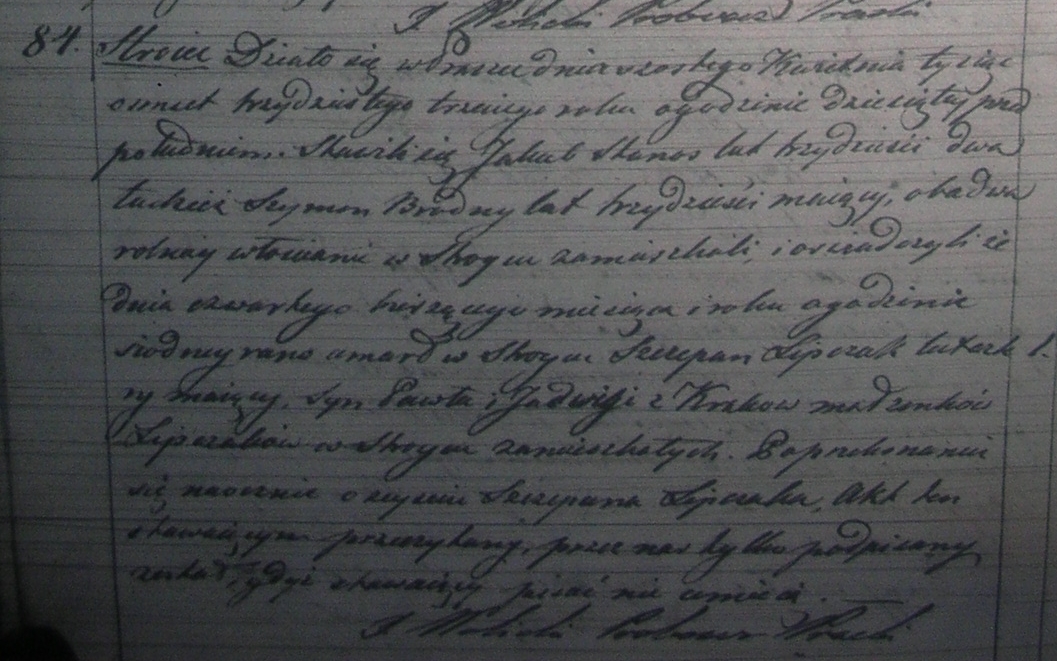 84. Stroiec Działo się w Praszce dnia szostego Kwietnia tysiąc
osmset trzydziestego trzeciego roku o godzinie dziesiątej przed
południem. Stawili się Jakub Stanos lat trzydzieści dwa
tudzież Szymon Brodny lat trzydzieści maiący, obadwa
rolnicy włościanie w Stroycu zamieszkali, i oświadczyli że
dnia czwartego bieżącego miesiąca i roku o godzinie
siodmey rano umarł w Stroycu Szczepan Lipczak lat czte
ry maiący, syn Pawła i Jadwigi z Krakow małżonków
Lipczaków w Stroycu zamieszkałych. Po przekonaniu
się naocznie o zeyściu Szczepana Lipczaka, Akt ten
stawaiącym przeczytany, przez nas tylko podpisany
został, gdyż stawaiący pisać nie umieią.
Proboszcz Praszki